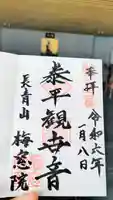 奉拝
令和六年
一月八日
泰平観世音
長青山
梅窓院